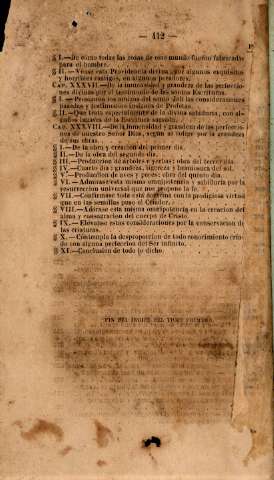 — 412 —
§ I.—De cómo todas las cosas de este mundo fueron fabricadas
para el hombre.
§ II.—Vése esta Providencia divina, por algunos exquisitos
y horribles castigos, en algunos pecadores.
CAP. XXXVII.—De la inmensidad y grandeza de las perfeccio-
nes divinas por el testimonio de las santas Escrituras.
§ I.—Prosiguen los mismos
pasadas y testimonios insignes de Profetas.
§ II.—Que trata especialmente de la divina sabiduría, con al-
gunos
CAP. XXXVIII.—De la inmensidad y grandeza de las perfeccio-
nes de nuestro Señor Dios, según se colige por la grandeza
de sus obras.
§ I.—De la obra y creacion del primer dia.
§ II.—De la obra del segundo dia.
§ III.—Produccion de árboles y yerbas: obra del tercer dia.
§ IV.—Cuarto dia: grandeza, fijeza y hermosura del sol.
§ V.—Produccion de aves y peces: obra del quinto dia.
§ VI.—Admírase esta misma omnipotencia y sabiduría por la
resurreccion universal que nos propone la fe.
§ VII.—Confírmase toda esta doctrina con la prodigiosa virtud
que en las semillas puso el Criador.
§ VIII.—Adórase esta misma omnipotencia en la creacion del
alma y consagracion del cuerpo de Cristo.
§ IX.—Elévanse estas consideraciones por la conservacion de
las criaturas.
§ X.—Contempla la desproporcion de todo conocimiento cria-
do con alguna perfeccion del Ser infinito.
§ XI.—Conclusion de todo lo dicho.
FIN DEL INDICE DEL TOMO PRIMERO.